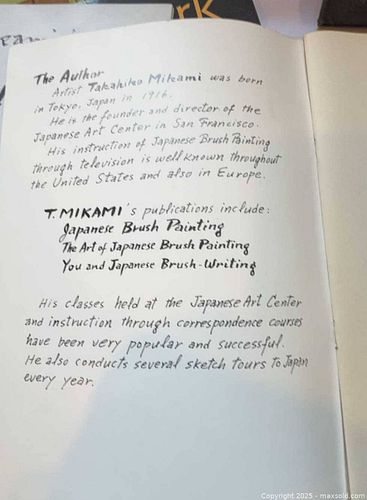 rk
The Author
Artist Takahiko Mikami was born
in Tokyo, Japan in 1916.
He is the founder and director of the
Japanese Art Center in San Francisco.
His instruction of Japanese Brush Painting
through television is well known throughout
the United States and also in Europe.
T. MIKAMI's publications include:
Japanese Brush Painting
The Art of Japanese Brush Painting
You and Japanese Brush-Writing
His classes held at the Japanese Art Center
and instruction through correspondence courses
have been very popular and successful.
He also conducts several sketch tours to Japan
every year.
Copyright 2025 - maxsold.com